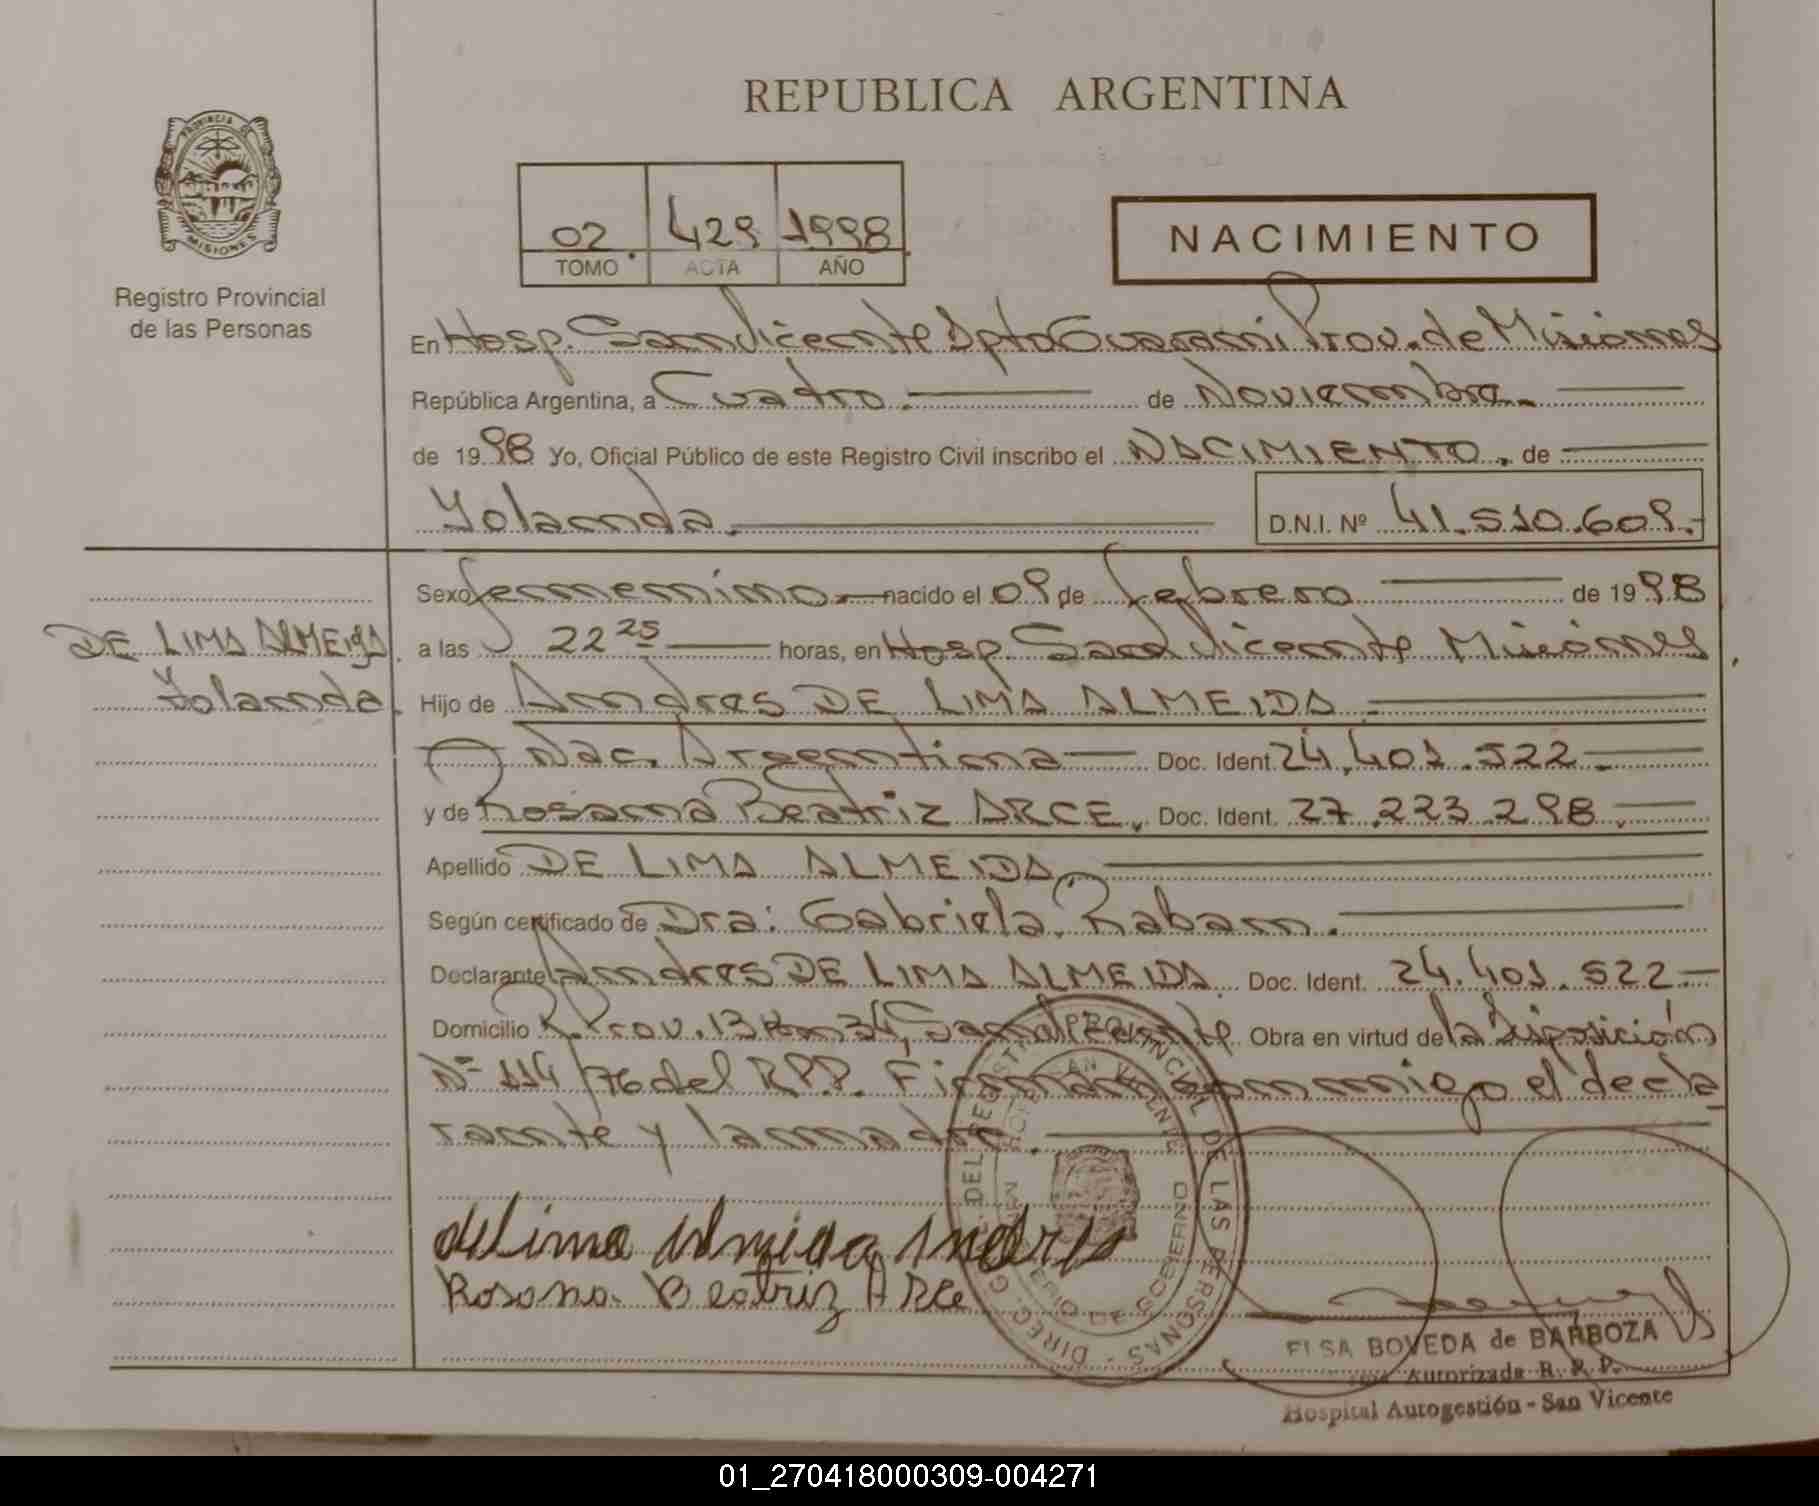 REPUBLICA ARGENTINA
PROVINCIA DE
MISIONES
Registro Provincial
de las Personas
02 429 1998
TOMO ACTA AÑO
NACIMIENTO
En Hosp. San Vicente Dpto Guarani Prov. de Misiones
República Argentina, a Cuatro. de Noviembre.
de 1998 Yo, Oficial Público de este Registro Civil inscribo el NACIMIENTO. de
Yolanda. D.N.I. Nº 41.510.609.-
DE LIMA ALMEIDA.
Yolanda.
Sexo femenino. nacido el 09 de febrero de 1998
a las 22 25 horas, en Hosp. San Vicente Misiones
Hijo de Andres DE LIMA ALMEIDA.
Nac. Argentina Doc. Ident. 24.401.522.
y de Rosana Beatriz ARCE. Doc. Ident. 27.223.298.
Apellido DE LIMA ALMEIDA.
Según certificado de Dra: Gabriela Raban.
Declarante Andres DE LIMA ALMEIDA. Doc. Ident. 24.401.522.-
Domicilio R. Prov. 13 Km 34, San Vicente Obra en virtud de la Disposición
Nº 114/76 del R.P.P. Firman conmigo el decla
rante y la madre.
DIREC. G. DEL REGISTRO PROVINCIAL DE LAS PERSONAS -
SAN VICENTE
DE GOBIERNO
de Lima Almeida Andres
Rosana Beatriz ARCe
ELSA BOVEDA de BARBOZA
Autorizada R. P. P.
Hospital Autogestión - San Vicente
01_270418000309-004271